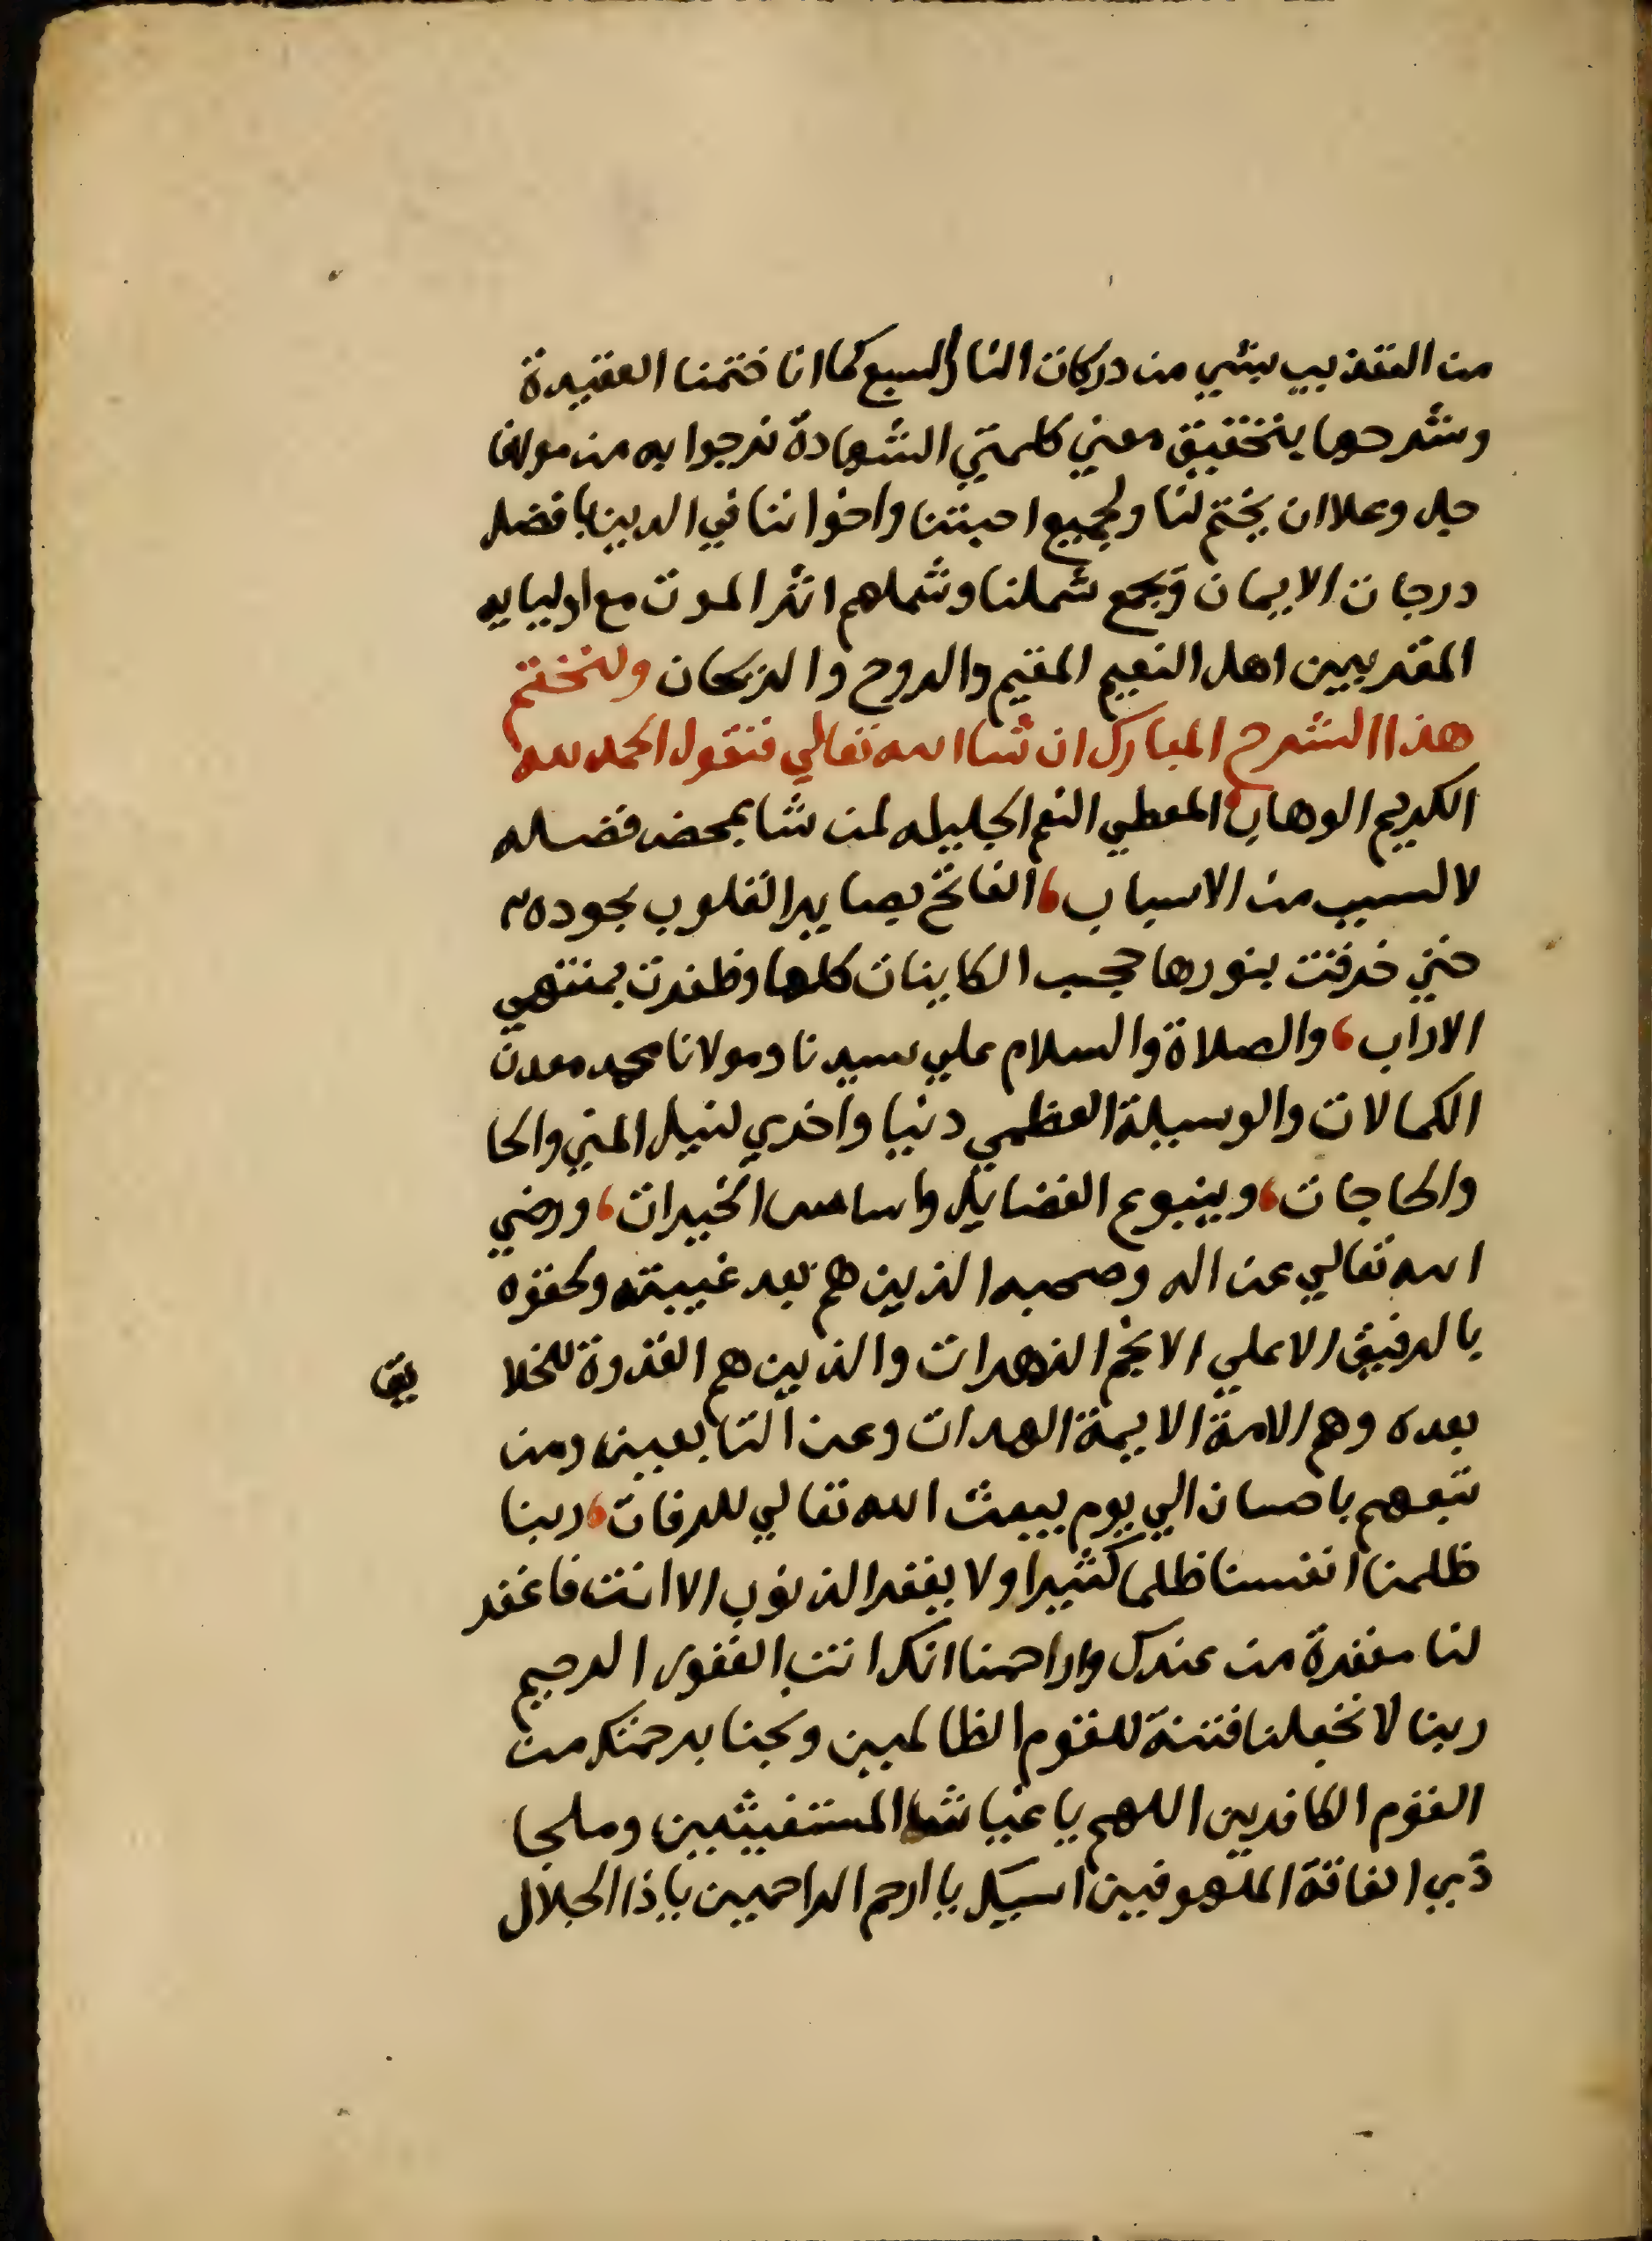 من التعذيب بشي من دركات النار السبع كما انا ختمنا العقيدة
وشرحها بتحقيق معني كلمتي الشهادة نرجوا به من مولانا
جل وعلا ان يختم لنا ولجميع احبتنا واخواننا في الدين بافضل
درجات الايمان ويجمع شملنا وشملهم اثر الموت مع اوليايه
المقربين اهل النعيم المقيم والروح والريحان ولنختم
هذا الشرح المبارك ان شا الله تعالي فنقول الحمد لله
الكريم الوهاب المعطي النعم الجليله لمن شا بمحض فضله
لا لسبب من الاسباب، الفاتح بصاير القلوب بجوده
حتي خرقت بنورها حجب الكاينات كلها وظفرت بمنتهي
الاراب، والصلاة والسلام علي سيدنا ومولانا محمد معدن
الكمالات والوسيلة العظمي دنيا واخري لنيل المني والحا
والحاجات، وينبوع الفضايل واساس الخيرات، ورضي
الله تعالي عن اله وصحبه الذين هم بعد غيبته ولحقوه
بالرفيق الاعلي الانجم الزهرات والذين هم القدوة للخلا يق
بعده وهم الامة الايمة الهدات وعن التابعين ومن
تبعهم باحسان الي يوم يبعث الله تعالي للرفات، ربنا
ظلمنا انفسنا ظلما كثيرا ولا يغفر الذنوب الا انت فاغفر
لنا مغفرة من عندك وارحمنا انك انت الغفور الرحيم
ربنا لا تجعلنا فتنة للقوم الظالمين ونجنا برحمتك من
القوم الكافرين اللهم يا غياث المستغيثين وملجا
ذي الفاقة الملهوفين اسيلك يا ارحم الراحمين يا ذا الجلال